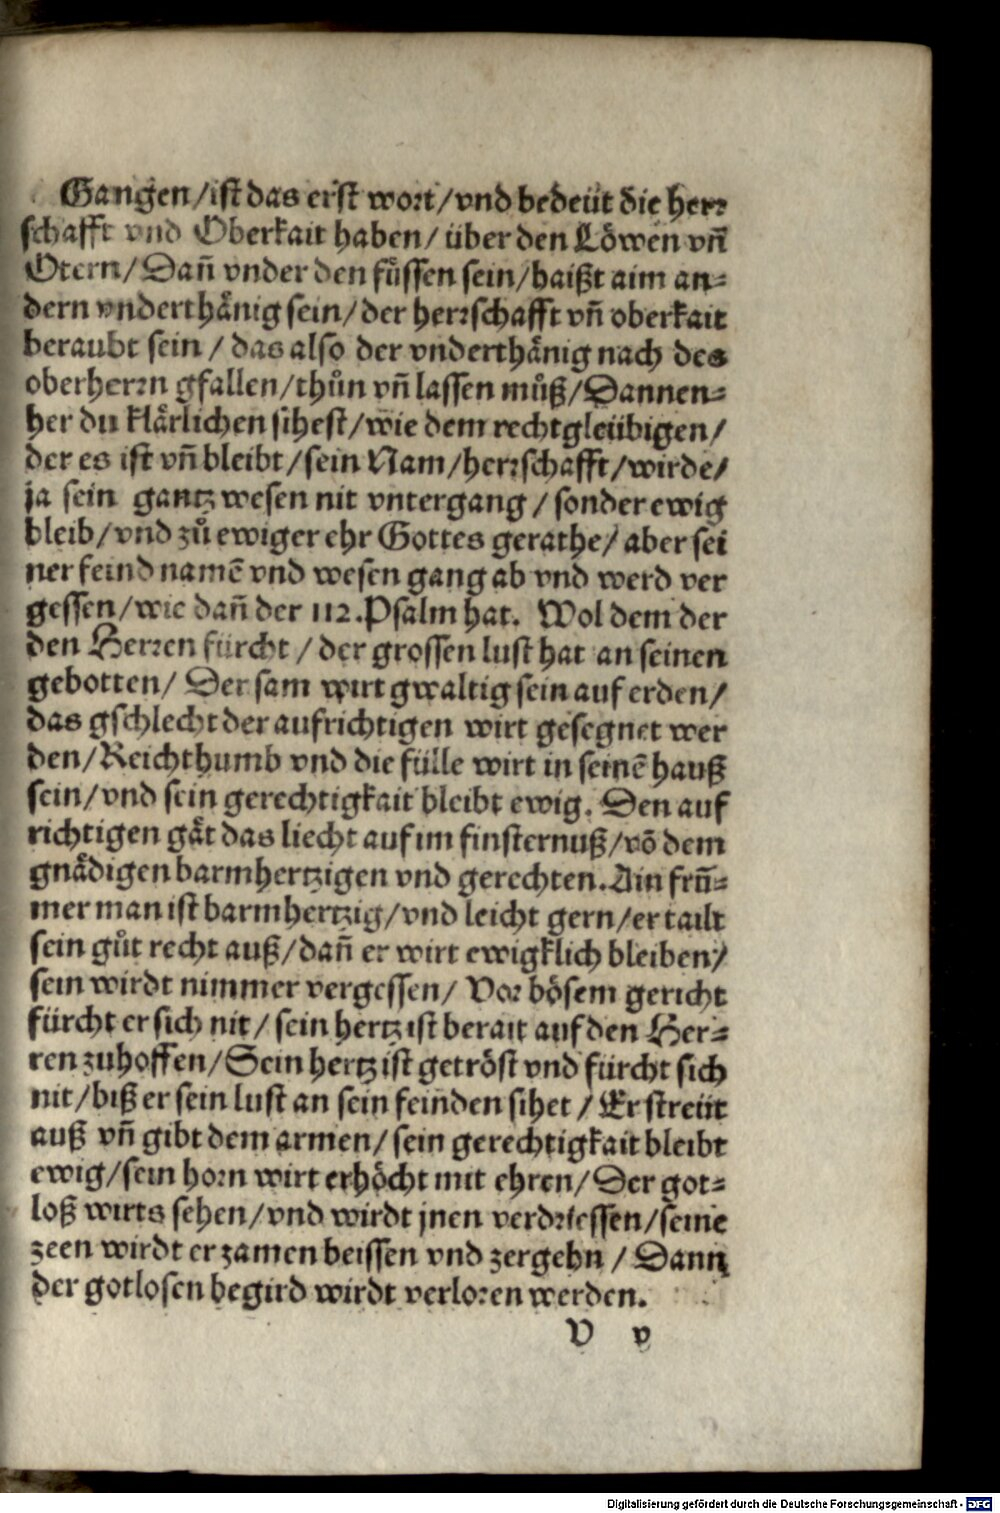 Gangen/ist das erst wort/vnd bedeüt die herr
schafft vnd Oberkait haben/ über den Löwen vñ
Otern/Dañ vnder den fůssen sein/haißt aim an-
dern vnderthånig sein/der herrschafft vñ oberkait
beraubt sein / das also der vnderthånig nach des
oberherrn gfallen/thůn vñ lassen můß/Dannen-
her du klårlichen sihest/wie dem rechtgleübigen/
der es ist vñ bleibt/sein Nam/herrschafft/wirde/
ja sein gantz wesen nit vntergang / sonder ewig
bleib/vnd zů ewiger ehr Gottes gerathe/ aber sei
ner feind namē vnd wesen gang ab vnd werd ver
gessen/wie dañ der 112.Psalm hat. Wol dem der
den Herren fürcht / der grossen lust hat an seinen
gebotten/ Der sam wirt gwaltig sein auf erden/
das gschlecht der aufrichtigen wirt gesegnet wer
den/Reichthumb vnd die fülle wirt in seinē hauß
sein/vnd sein gerechtigkait bleibt ewig. Den auf
richtigen gåt das liecht auf im finsternuß/võ dem
gnådigen barmhertzigen vnd gerechten. Ain frũ-
mer man ist barmhertzig/vnd leicht gern/er tailt
sein gůt recht auß/dañ er wirt ewigklich bleiben/
sein wirdt nimmer vergessen/ Vor bösem gericht
fürcht er sich nit/ sein hertz ist berait auf den Her-
ren zuhoffen/Sein hertz ist getröst vnd fürcht sich
nit/biß er sein lust an sein feinden sihet / Er streüt
auß vñ gibt dem armen/ sein gerechtigkait bleibt
ewig/sein horn wirt erhöcht mit ehren/Der got-
loß wirts sehen/vnd wirdt jnen verdriessen/seine
zeen wirdt er zamen beissen vnd zergehn / Dann
der gotlosen begird wirdt verloren werden.
V v
Digitalisierung gefördert durch die Deutsche Forschungsgemeinschaft - DFG